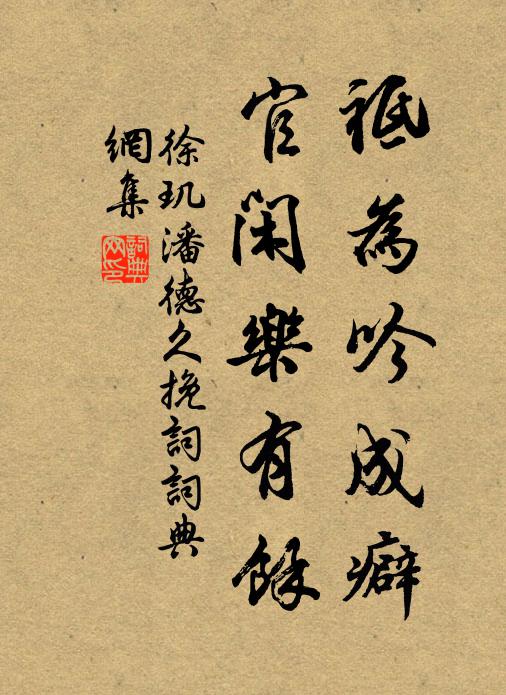 祗為吟成癖
官閑樂有餘
徐玑潘德久挽詞詞典
網集
詞典网印